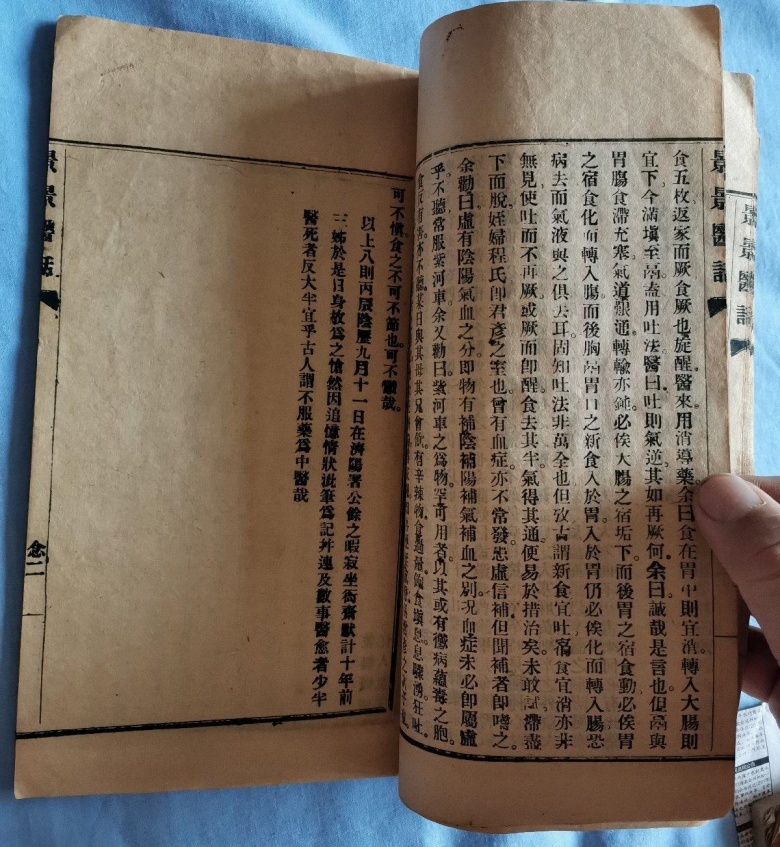 景景醫話
景景醫話
食五枚返家而厥食厥也旋醒醫來用消導藥余曰食在胃中則宜消轉入大腸則
宜下今滿塡至鬲盍用吐法醫曰吐則氣逆其如再厥何余曰誠哉是言也但鬲與
胃腸食滯充塞氣道艱通轉輸亦鈍必俟大腸之宿垢下而後胃之宿食動必俟胃
之宿食化而轉入腸而後胸鬲胃口之新食入於胃入於胃仍必俟化而轉入腸恐
病去而氣液與之俱去耳固知吐法非萬全也但攷古謂新食宜吐宿食宜消亦非
無見使吐而不再厥或厥而卽醒食去其半氣得其通便易於措治矣未敢試滯盡
下而脫姪婦程氏卽君彥之室也曾有血症亦不常發恙虛信補但聞補者卽嗜之
余勸曰虛有陰陽氣血之分卽物有補陰補陽補氣補血之別況血症未必卽屬虛
乎不聽常服紫河車余又勸曰紫河車之爲物罕可用者以其或有黴病蘊毒之胞
食反有害亦不聽某日與其母其兄會飮有辛辣物食過
可不愼食之不可不節也可不懼哉
以上八則丙辰陰歷九月十一日在濟陽署公餘之暇寂坐衙齋默計十年前
三姊於是日身故爲之愴然因追憶情狀泚筆爲記幷連及數事醫愈者少半
醫死者反大半宜乎古人謂不服藥爲中醫哉
景景醫話
念二